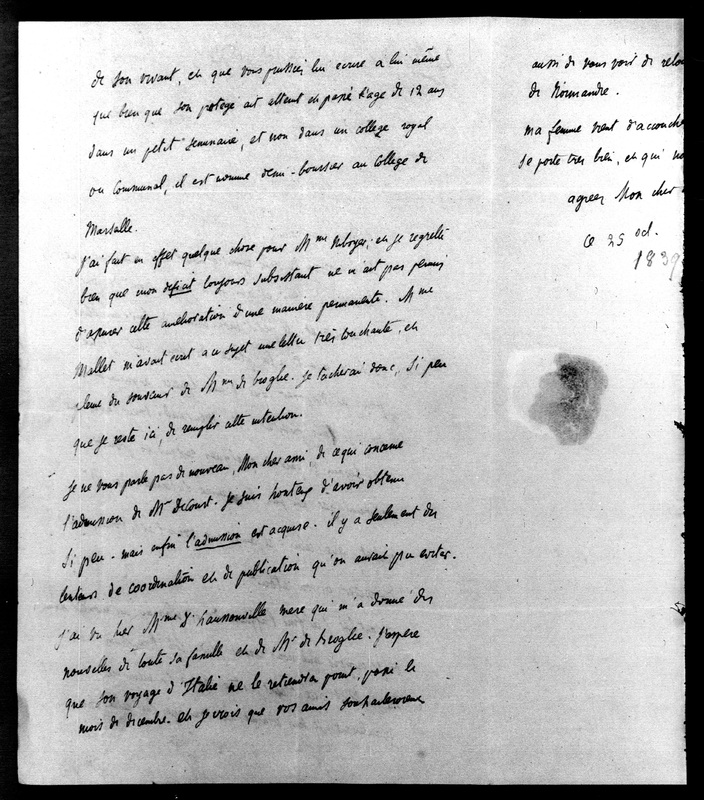 de son vivant, et que vous puissiez lui ecrire a lui même
que bien que son protegé ait atteint et passé l'age de 12 ans
dans un petit seminaire, et non dans un college royal
ou communal, il est nommé demi-boursier au College de
Marseille.
J'ai fait en effet quelque chose pour Mme et je regrette
bien que mon deficit toujours subsistant ne m'ait pas permis
d'assurer cette amelioration d'une maniere permanente. Mme
Mallet m'avait ecrit a ce sujet une lettre très touchante, et
pleine du souvenir de Mme de broglie. Je tacherai donc, si peu
que je reste ici, de remplir cette intention.
Je ne vous parle pas de nouveau, Mon cher ami, de ce qui concerne
l'admission de Mr Decourt. Je suis honteux d'avoir obtenu
si peu. mais enfin l'admission est acquise. il y a seulement des
lenteurs de coordination et de publication qu'on aurait pu eviter.
J'ai vu hier Mme d'haussonville mere qui m'a donné des
nouvelles de toute sa famille et de Mr de broglie. J'espere
que son voyage d'Italie ne le retiendra point, passé le
mois de decembre. et je crois que vos amis souhaiteroient
aussi de vous voir de retou
de Normandie.
ma femme vient d'accouche
se porte très bien, et qui
agreez Mon cher
Ce 25 oct.
1839